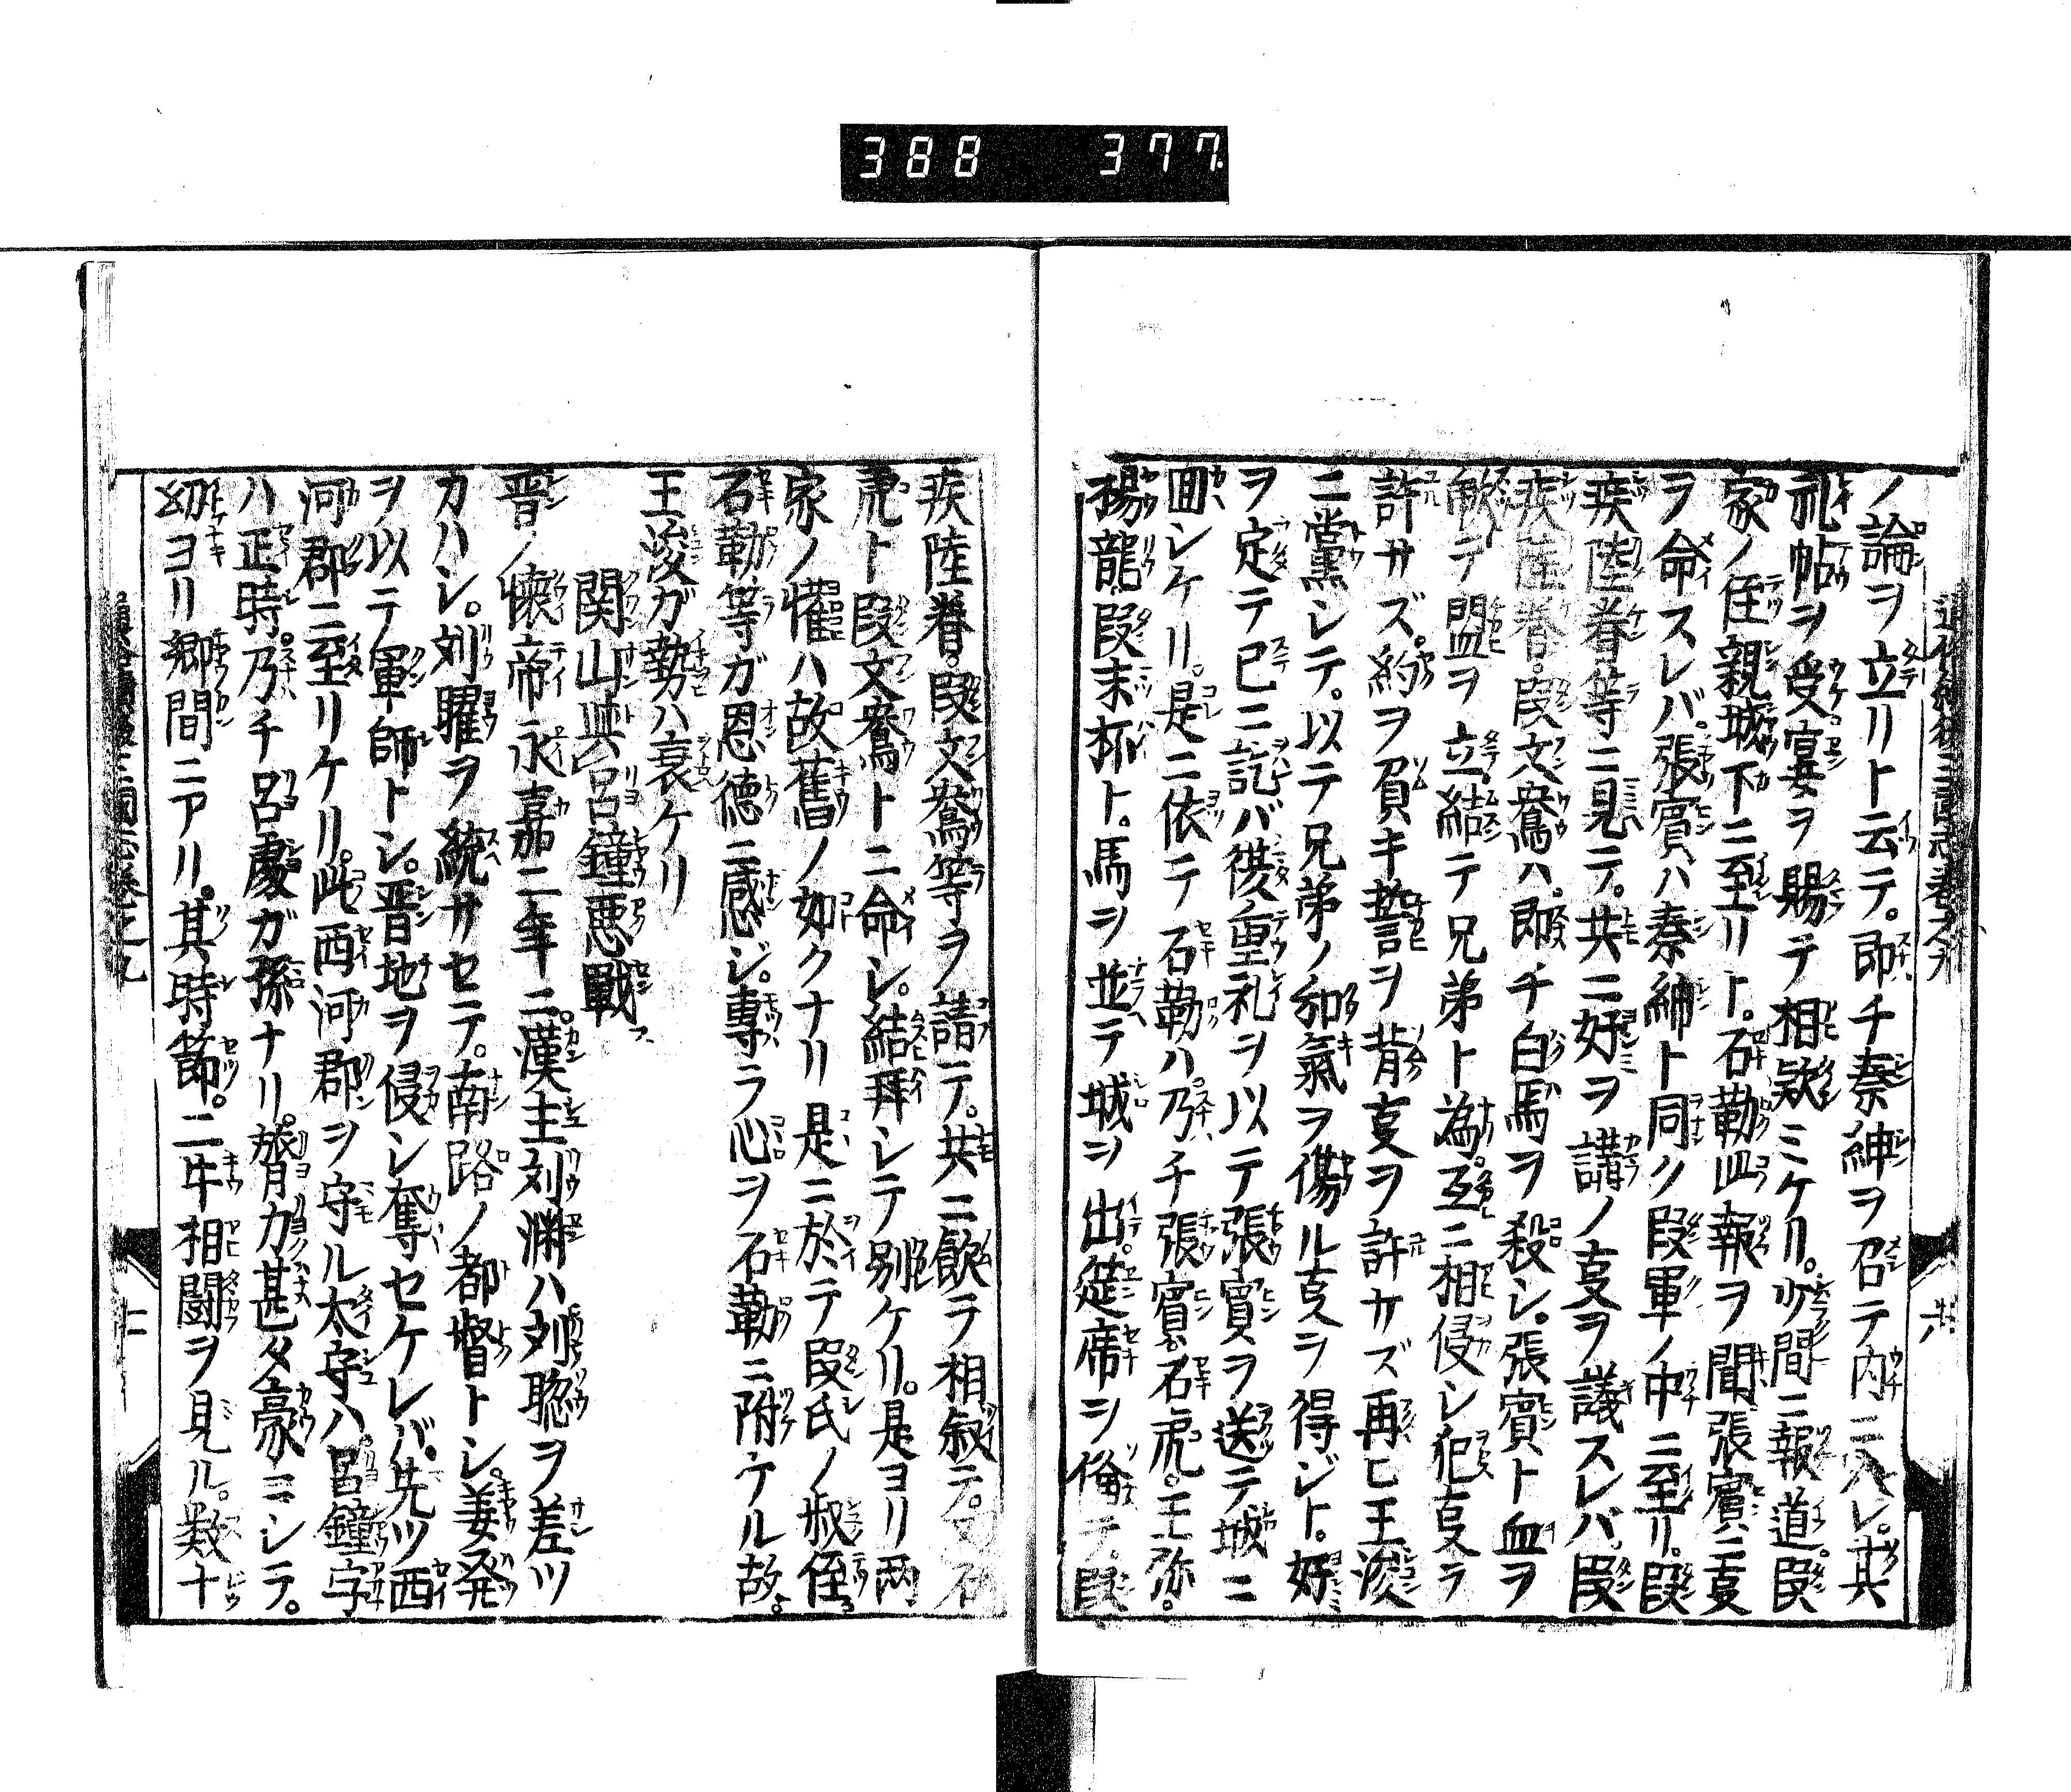 388 377
ノ論ヲ立リト云テ。即チ秦紳ヲ召テ内ニ入レ。其
礼帖ヲ受宴ヲ賜テ相欵ミケリ。少間ニ報道。段
家ノ侄親城下ニ至リト。石勒此報ヲ聞張賓ニ㕝
ヲ命スレバ。張賓ハ秦紳ト同ク段軍ノ中ニ至リ。段
疾陸眷等ニ見テ。共ニ好ヲ講ノ㕝ヲ議スレバ。段
疾陸眷。段文鴦ハ。即チ白馬ヲ殺シ。張賓ト血ヲ
飲テ盟ヲ立結テ兄弟ト為。互ニ相侵シ犯㕝ヲ
許サズ。約ヲ負キ誓ヲ背㕝ヲ許サズ再ヒ王浚
ニ黨シテ。以テ兄弟ノ和氣ヲ傷ル㕝ヲ得ジト。好
ヲ定テ已ニ訖バ復重礼ヲ以テ張賓ヲ送テ城ニ
回シケリ。是ニ依テ石勒ハ乃チ張賓。石虎。王弥。
楊龍段末杯ト。馬ヲ並テ城ヲ出筵席ヲ備テ段
疾陸眷。段文鴦等ヲ請テ。共ニ飲テ相叙テ。又石
虎ト段文鴦トニ命シ。結拜シテ別ケリ。是ヨリ両
家ノ懽ハ故舊ノ如クナリ是ニ於テ段氏ノ叔侄
石勒等ガ恩徳ニ感ジ。專ラ心ヲ石勒ニ附ケル故。
王浚ガ勢ハ衰ケリ
関山與呂鐘悪戰
晋ノ懐帝永嘉二年ニ。漢主刘淵ハ刘聡ヲ差ツ
カハシ。刘曜ヲ統サセテ。南路ノ都督トシ。姜発
ヲ以テ軍師トシ。晋地ヲ侵シ奪セケレバ。先ツ西
河郡ニ至リケリ。此西河郡ヲ守ル太守ハ。呂鐘字
ハ正時。乃チ呂慶ガ孫ナリ。膂力甚タ豪ニシテ。
幼ヨリ郷間ニアリ。其時節。二牛相闘ヲ見ル。数十